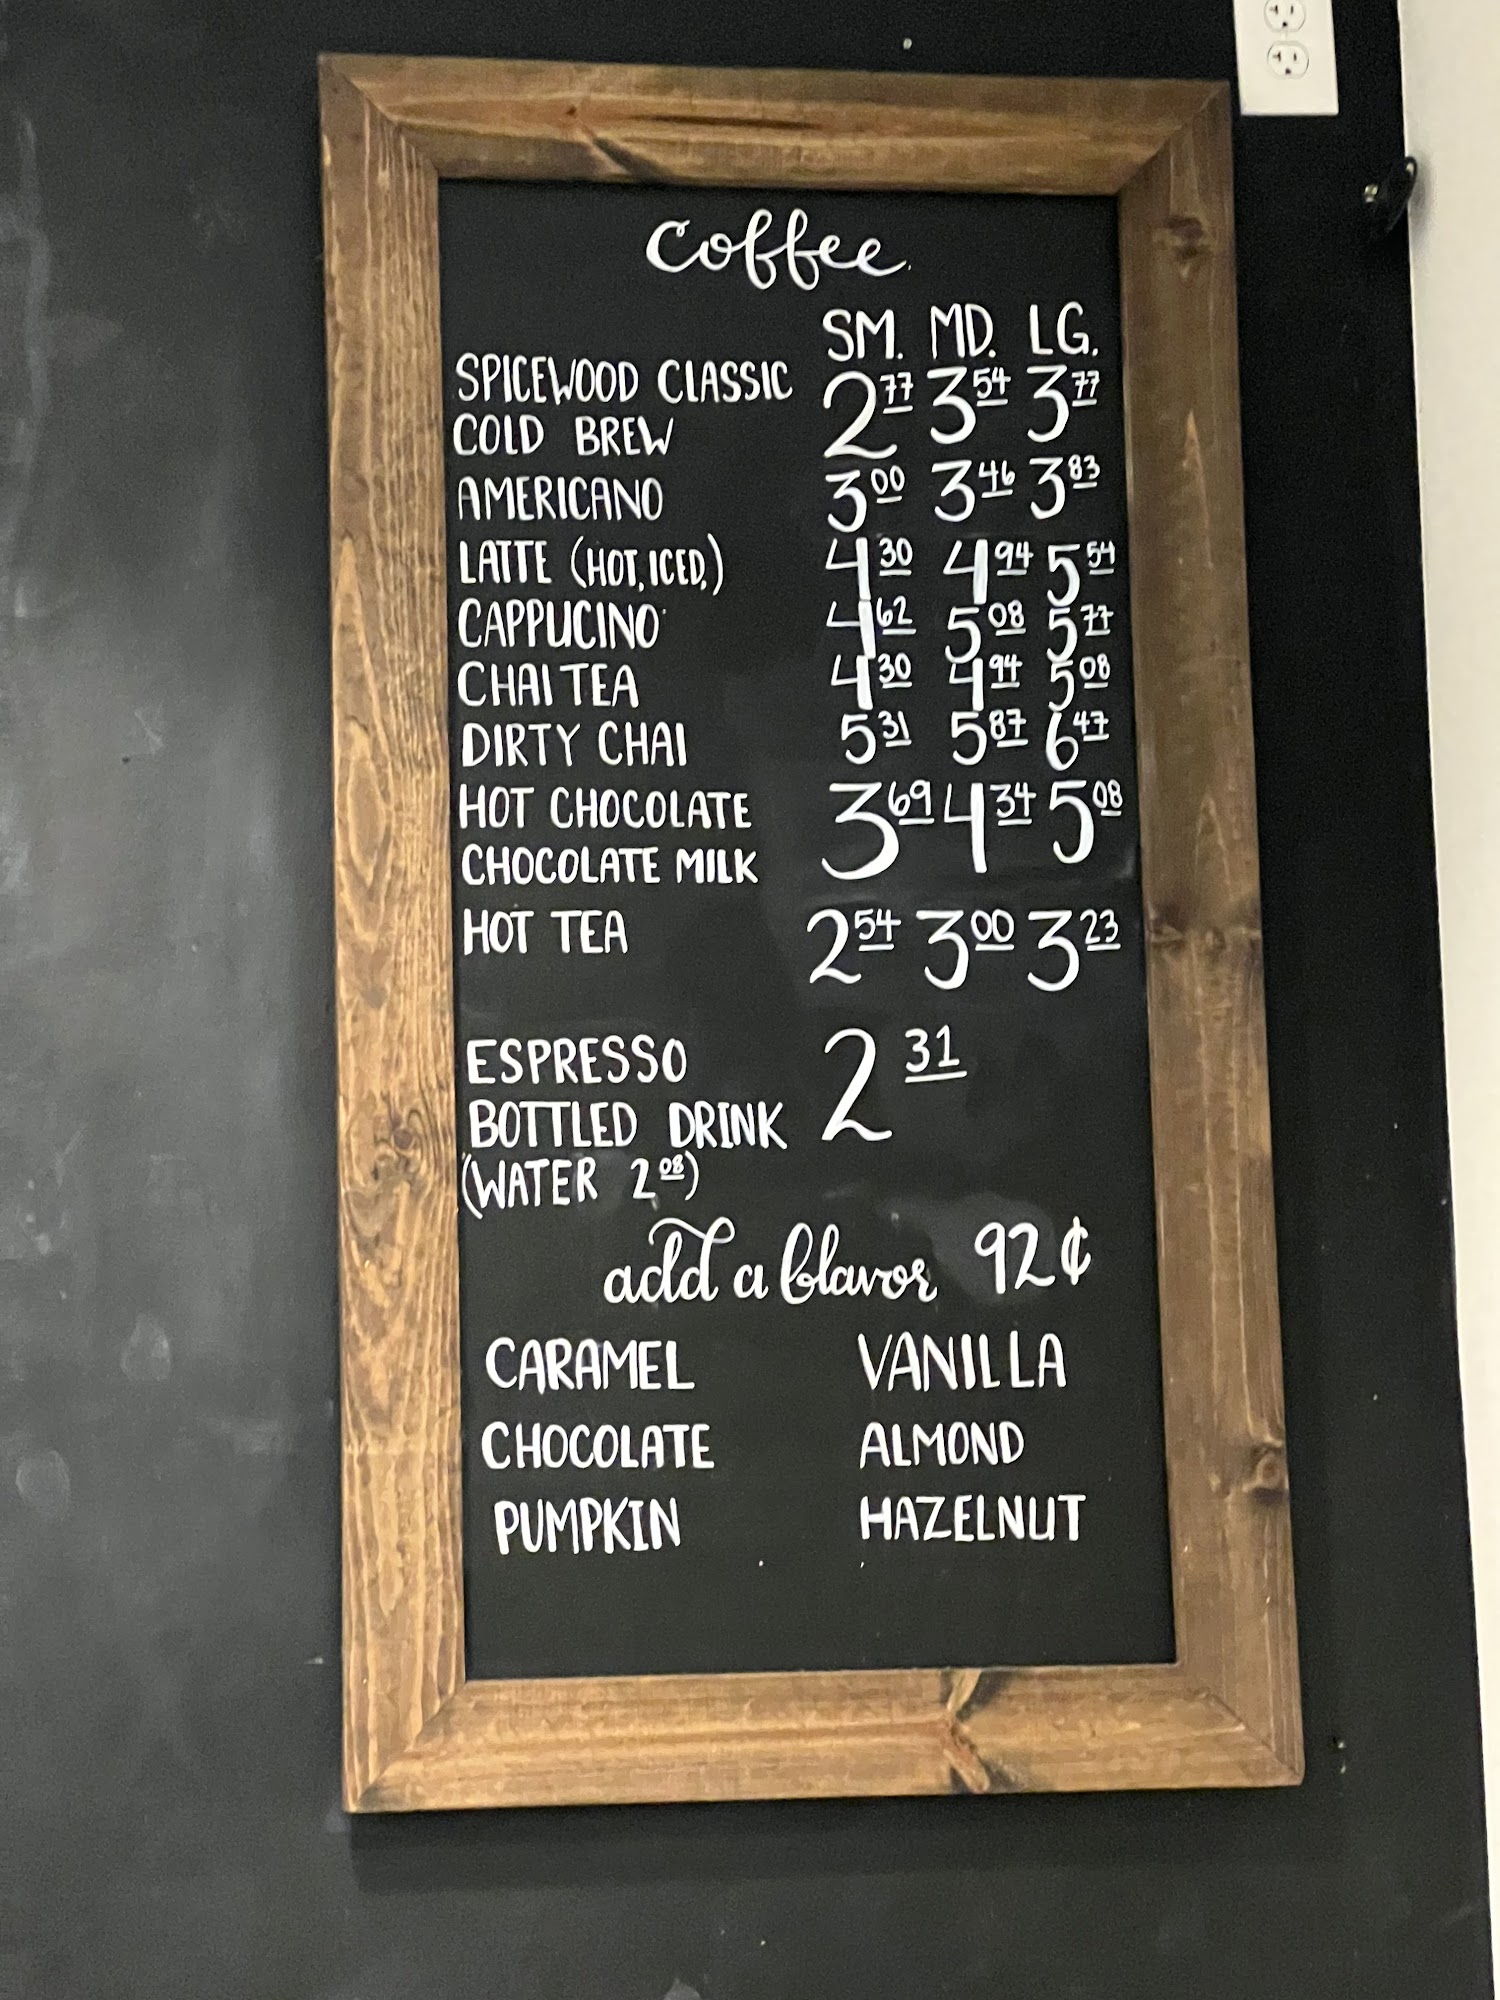 coffee
SM. MD. LG.
SPICEWOOD CLASSIC 2 77 3 54 3 77
COLD BREW
AMERICANO 3 00 3 46 3 83
LATTE (HOT, ICED,) 4 30 4 94 5 54
CAPPUCINO 4 62 5 08 5 77
CHAI TEA 4 30 4 94 5 08
DIRTY CHAI 5 31 5 87 6 47
HOT CHOCOLATE 3 69 4 34 5 08
CHOCOLATE MILK
HOT TEA 2 54 3 00 3 23
ESPRESSO 2 31
BOTTLED DRINK
(WATER 2 08)
add a flavor 92¢
CARAMEL VANILLA
CHOCOLATE ALMOND
PUMPKIN HAZELNUT